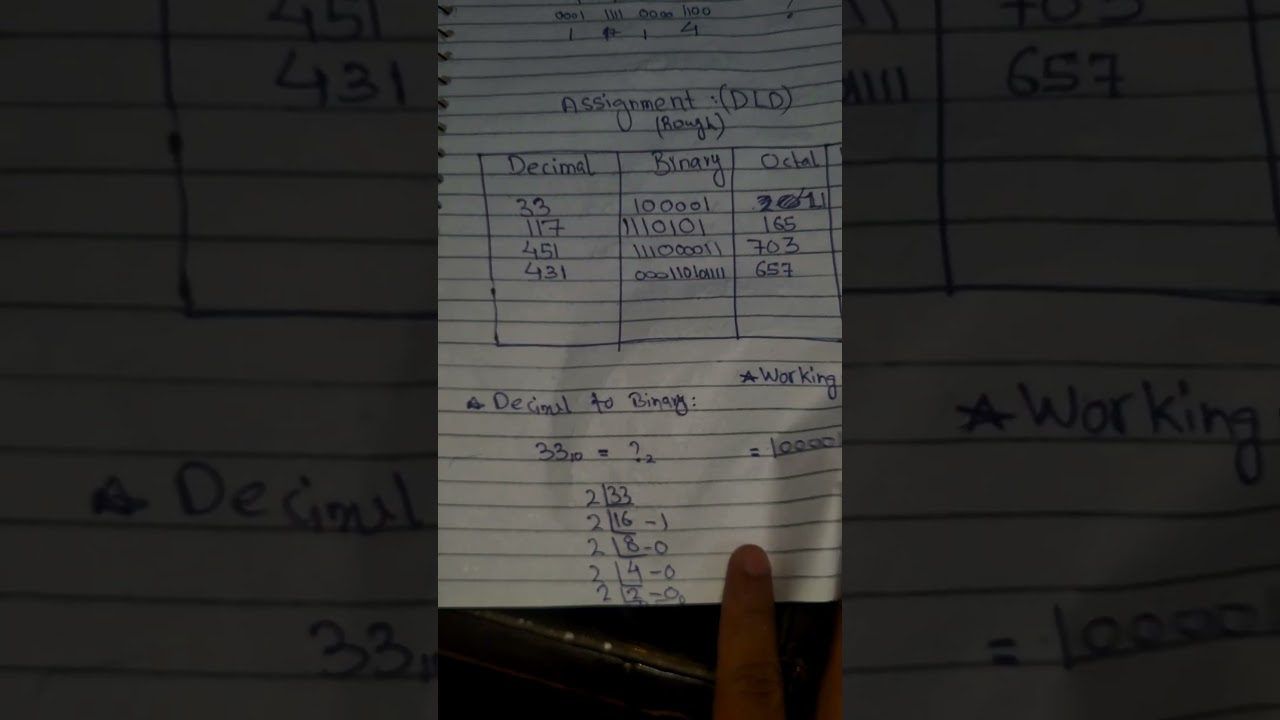 0001 1111 0000 1100
1 1 4
?
Assignment :(DLD)
(Rough)
Decimal Binary Octal
33 100001
117 1110101 165
451 111000011 703
431 000110101111 657
★ Working
★ Decimel to Binary:
33₁₀ = ?₂ = 10000
2 33
2 16 - 1
2 8 - 0
2 4 - 0
2 2 - 0